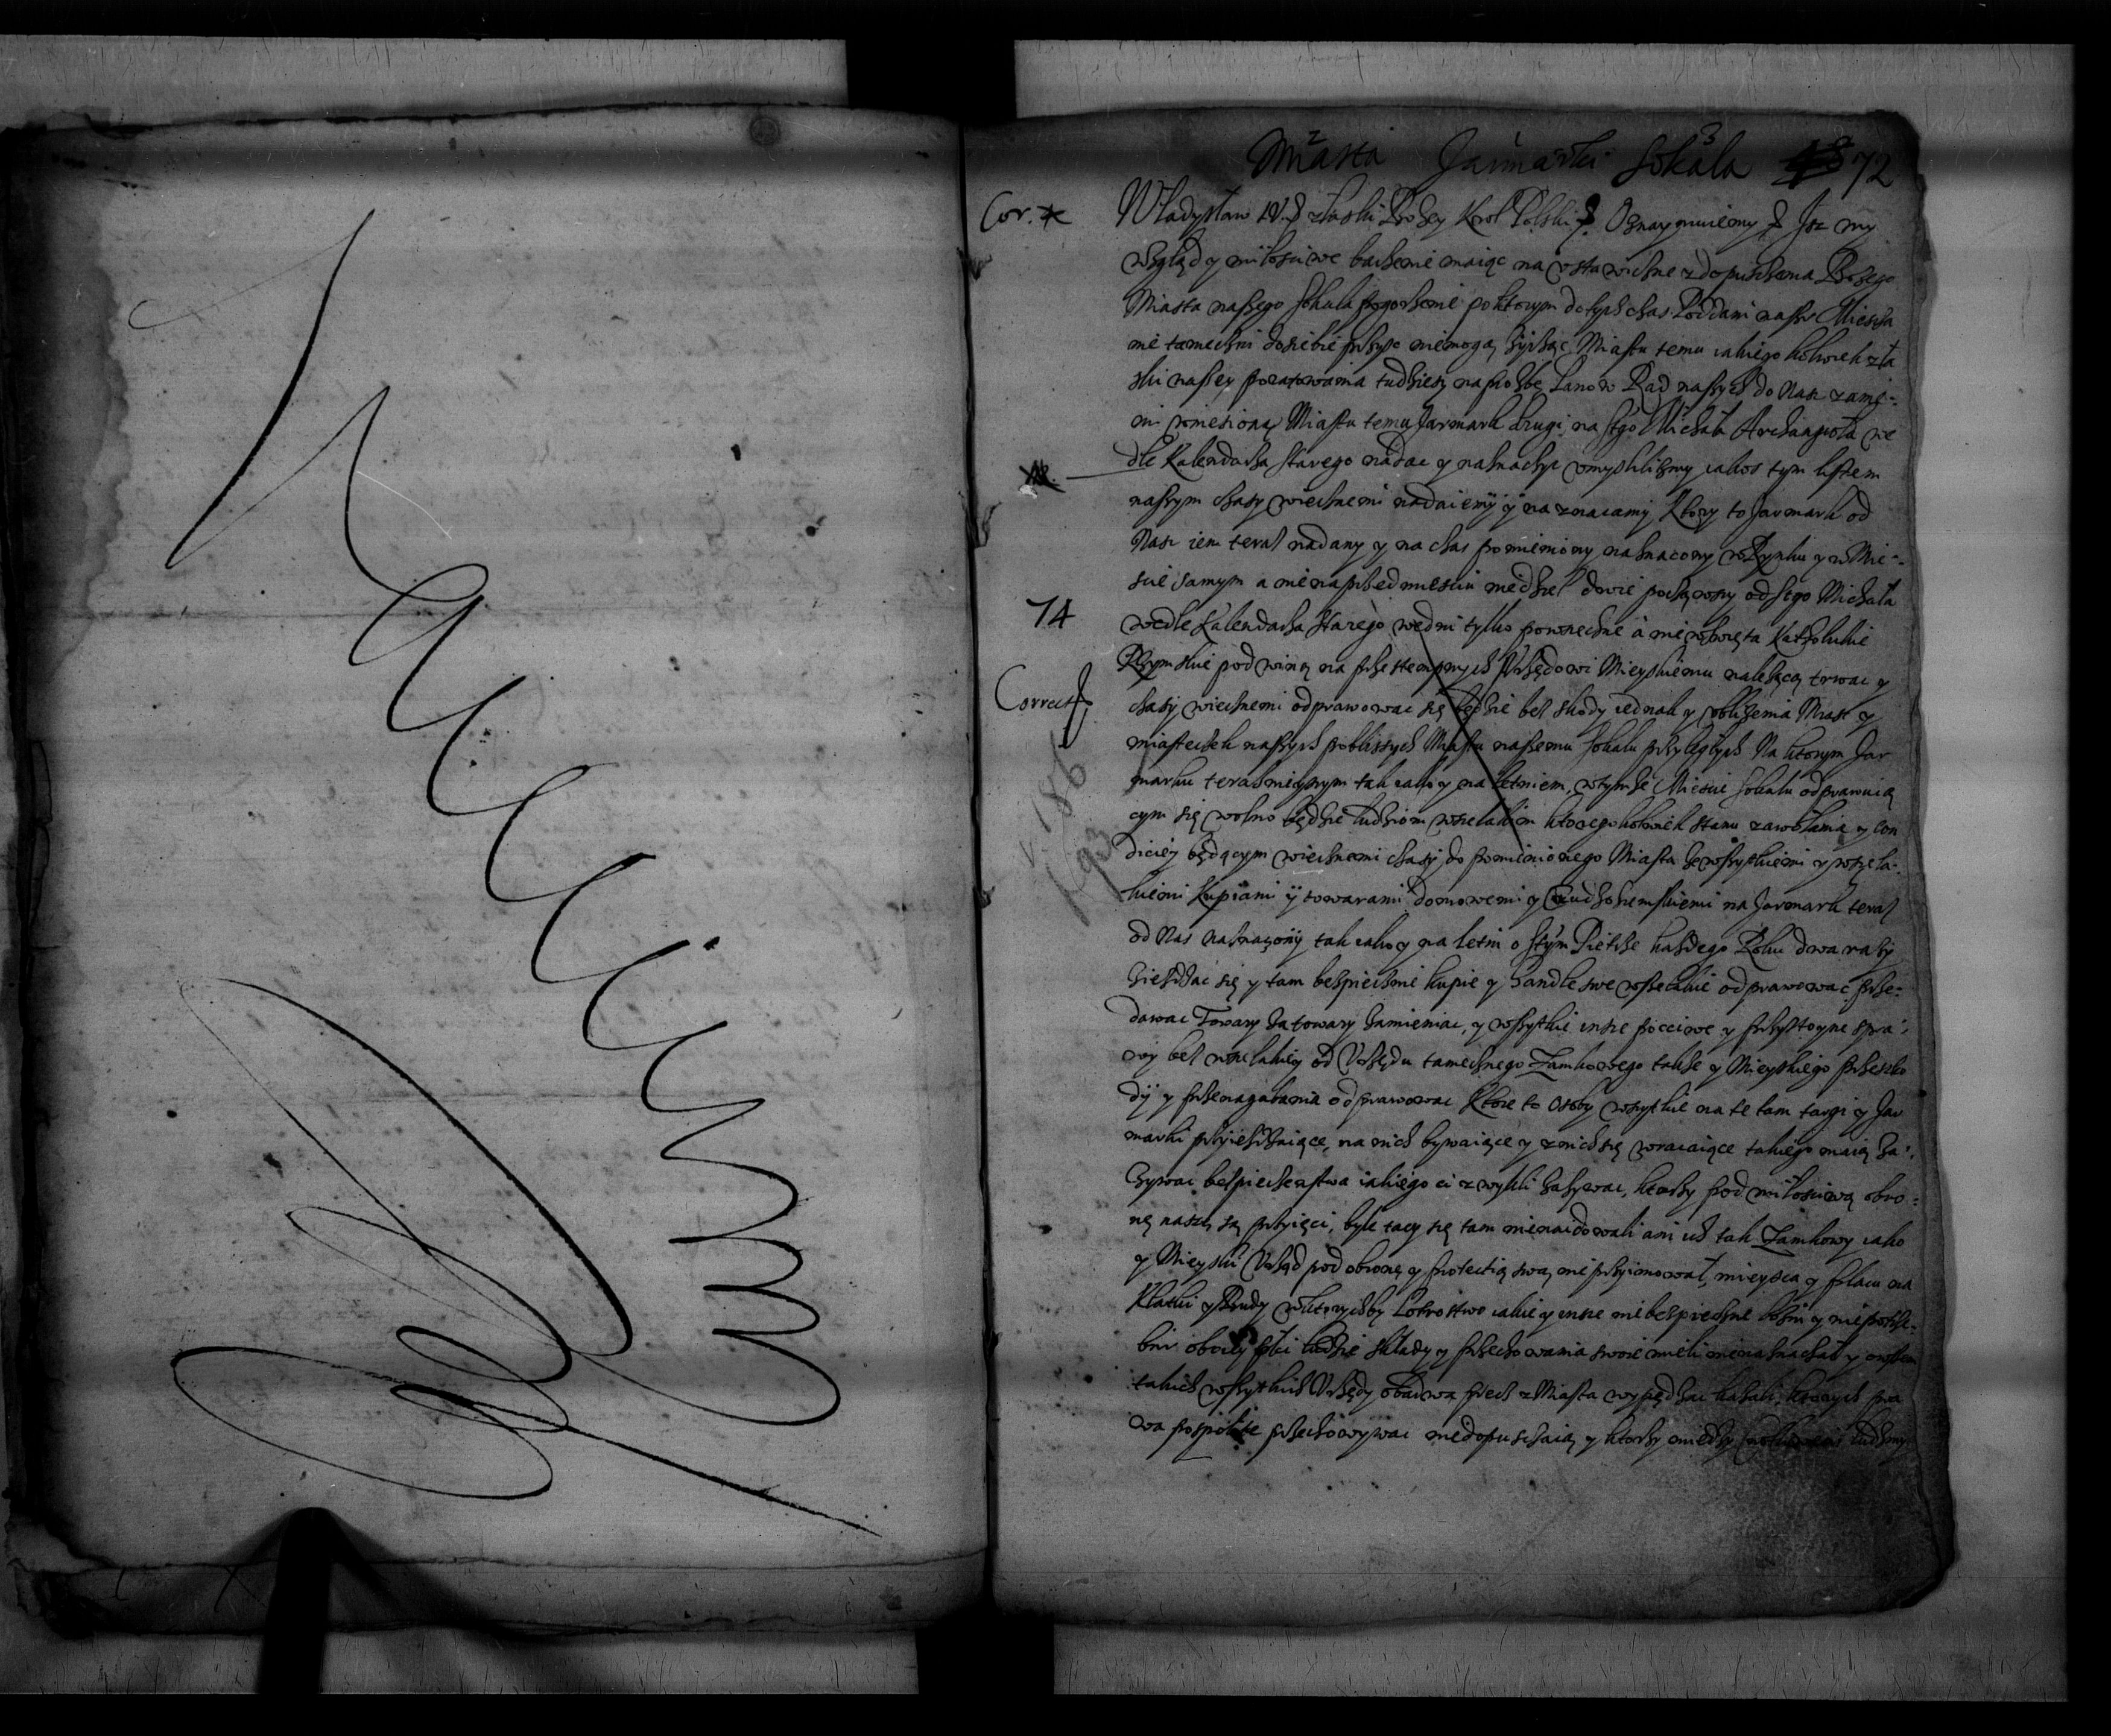 Miasta Jarmarki Sokala 72
Cor.
Władysław IV. z łaski Bożey Krol Polski Oznaymuiemy Isz my
wzgląd y miłościwe baczenie maiąc na ustawiczne z dopuszczenia Bożego
Miasta naszego Sokala pogorzenie po ktorym dotych czas Poddani naszy Miescza
nie tameczni do siebie przysc niemogą, życząc Miastu temu iakiego kolwiek z ła
ski naszey poratowania tudziesz na prozbę Panow Rad naszych do Nas za nie-
mi wniesioną Miastu temu Jarmark drugi na Stgo Michała Archangioła we
dle Kalendarza starego nadac y naznaczyc umyslilismy iakosz tym listem
naszym czasy wiecznemi nadaiemy y naznacamy Ktory to Jarmark od
Nas iem teraz nadany y na czas pomieniony naznacony w Rynku y w Mie-
scie samym a nie na przedmiesciu niedziel dwie począwszy od Sgo Michała
74
wedle Kalendarza starego we dni tylko powszednie a nie w swięta Katholickie
Rzymskie pod winą na przestempnych Urzędowi Mieyskiemu należącą trwac y
Correct
czasy wiecznemi odprawowac się będzie bez skody iednak y ubliżenia Miast y
miasteczek naszych poblisszych Miastu naszemu Sokalu przyległych Na ktorym Jar
186
marku teraznieyszym tak iako y na letniem, w tymże Miescie Sokalu odprawuią
cym się wolno będzie ludziom wszelakim ktoregokolwiek stanu zawołania y con
diciey będącym wiecznemi czasy do pomienionego Miasta ze wszystkiemi y wszela-
93
kiemi kupiami y towarami domowemi y cudzoziemskiemi na Jarmark teraz
od Nas naznacony tak iako y na letni o Stym Pietrze każdego Roku dwa razy
zieżdżac się y tam bespiecznie kupie y handle swe wszelakie odprawowac prze-
dawac Towary za towary zamieniac, y wszytkie insze pocciwe y przystoyne spra-
wy bez wszelakiey od Urzędu tamecznego Zamkowego także y Mieyskiego przeszko
dy y przenagabania odprawowac Ktore to osoby wszytkie na te tam targi y Jar
marki przyieżdżaiące, na nich bywaiące y z nich się wracaiące takiego maią za-
żywac bespieczenstwa iakiego ci zwykli zażywac, ktorzy pod miłosciwą obro-
nę naszą są przyięci, byle tacy się tam nienaidowali ani ich tak Zamkowy iako
y Mieyski Urząd pod obronę y protectią swą nie przyimował, mieysca y placu na
Klatki y Budy w ktorychby Łotrostwo iakie y insze niebespieczne y niepotrze-
bni oboiey płci ludzie składy y przechowania swoie mieli nienaznaczał y owszem
takich wszytkich Urzędy obadwa precz z Miasta wypędzac kazali, ktorych pra
wa pospolite przechowywac niedopuszczaią y ktorzy miedzy ludzmi